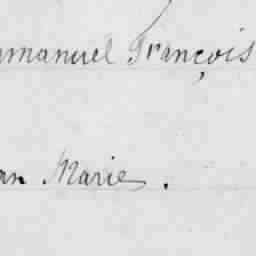 mmanuel François
an Marie.